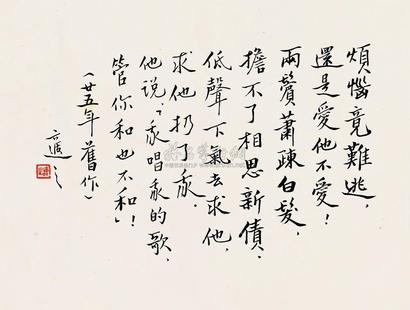 煩惱竟難逃，
還是愛他不愛！
兩鬢蕭疎白髮，
擔不了相思新債。
低聲下氣去求他，
求他扔了我。
他说，「我唱我的歌，
管你和也不和」！
（廿五年舊作）
適之